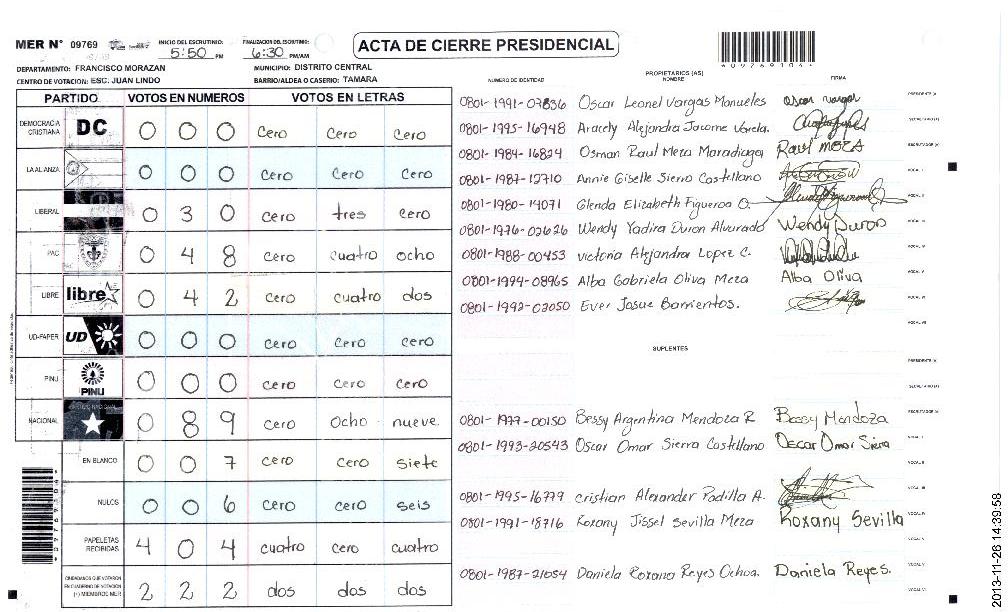 MER N° 09769 INICIO DEL ESCRUTINIO: 5:50 PM FINALIZACION DEL ESCRUTINIO: 6:30 PM/AM ACTA DE CIERRE PRESIDENCIAL
DEPARTAMENTO: FRANCISCO MORAZAN MUNICIPIO: DISTRITO CENTRAL
CENTRO DE VOTACION: ESC. JUAN LINDO BARRIO/ALDEA O CASERIO: TAMARA
PARTIDO VOTOS EN NUMEROS VOTOS EN LETRAS
DEMOCRACIA CRISTIANA DC 0 0 0 cero cero cero
LA ALIANZA 0 0 0 cero cero cero
LIBERAL 0 3 0 cero tres cero
PAC 0 4 8 cero cuatro ocho
LIBRE libre 0 4 2 cero cuatro dos
UD-FAPER UD 0 0 0 cero cero cero
PINU PINU 0 0 0 cero cero cero
NACIONAL 0 8 9 cero ocho nueve
EN BLANCO 0 0 7 cero cero siete
NULOS 0 0 6 cero cero seis
PAPELETAS RECIBIDAS 4 0 4 cuatro cero cuatro
CIUDADANOS QUE VOTARON EN CUADERNO DE VOTACION (+) MIEMBROS MER 2 2 2 dos dos dos
NUMERO DE IDENTIDAD PROPIETARIOS (AS) NOMBRE FIRMA
0801-1991-07836 Oscar Leonel Vargas Manueles oscar vargas
0801-1995-16948 Aracely Alejandra Jacome Varela.
0801-1984-16824 Osman Raul Meza Maradiaga Raul MEZA
0801-1987-12710 Annie Giselle Sierra Castellano
0801-1980-14071 Glenda Elizabeth Figueroa O.
0801-1976-02626 Wendy Yadira Duron Alvarado Wendy Duron
0801-1988-00453 victoria Alejandra Lopez C.
0801-1994-08965 Alba Gabriela Oliva Meza Alba Oliva
0801-1992-02050 Ever Josue Barrientos.
SUPLENTES
0801-1977-00150 Bessy Argentina Mendoza R Bessy Mendoza
0801-1993-20543 Oscar Omar Sierra Castellano Oscar Omar Siera
0801-1995-16779 cristian Alexander Padilla A.
0801-1991-18716 Roxany Jissel Sevilla Meza Roxany Sevilla
0801-1987-21054 Daniela Roxana Reyes Ochoa. Daniela Reyes.
2013-11-26 14:39:58